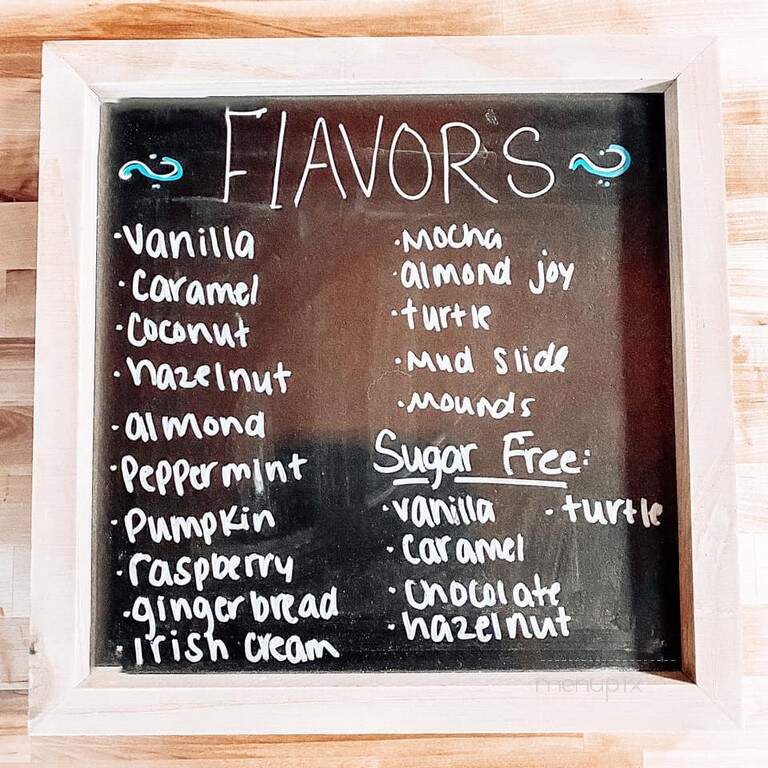 FlAVORS
·vanilla
·caramel
·coconut
·hazelnut
·almond
·peppermint
·pumpkin
·raspberry
·gingerbread
·irish cream
·mocha
·almond joy
·turtle
·mud slide
·mounds
Sugar Free:
·vanilla ·turtle
·caramel
·chocolate
·hazelnut
menupix